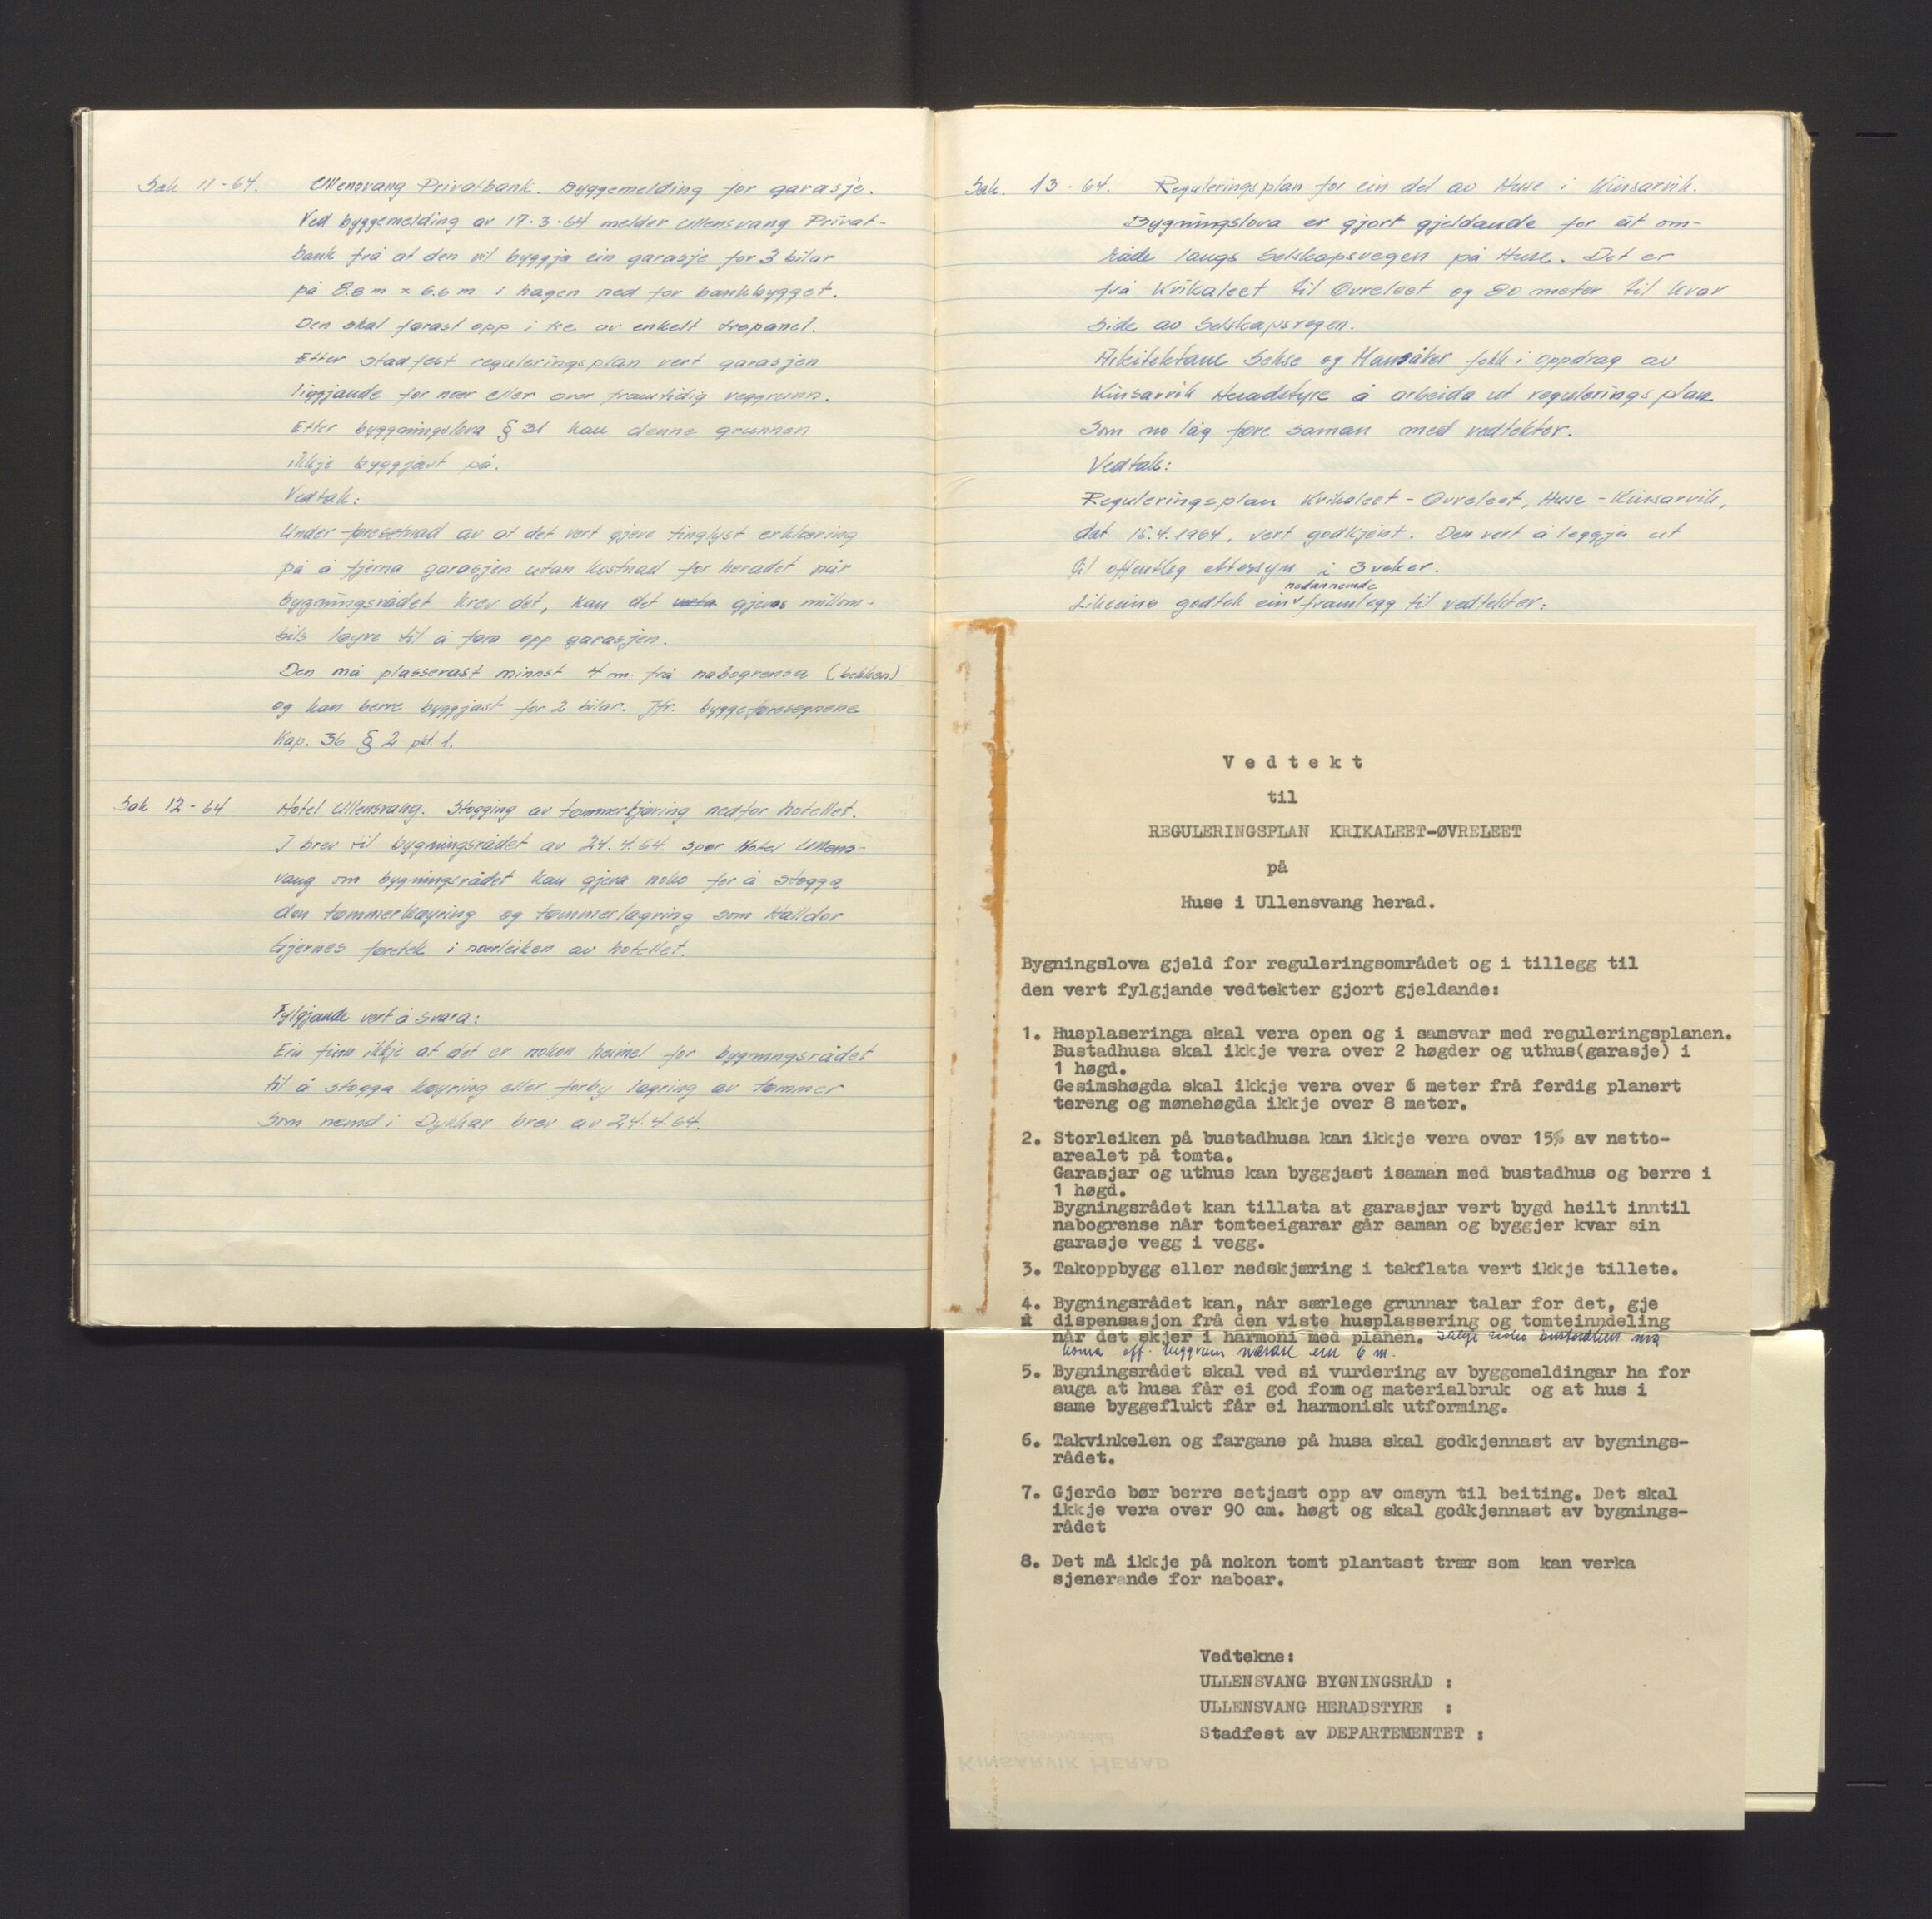 Sak 11-64. Ullensvang Privatbank. Byggemelding for garasje.
Ved byggemelding av 17.3-64 melder Ullensvang Privat-
bank frå at den vil byggja ein garasje for 3 bilar
på 8.8 m x 6.6 m i hagen ned for bankbygget.
Den skal førast opp i tre av enkelt trepanel.
Etter stadfest reguleringsplan vert garasjen
liggjande for nær eller over framtidig veggrunn.
Etter byggningslova § 31 kan denne grunnen
ikkje byggjast på.
Vedtak:
Under føresetnad av at det vert gjeve tinglyst erklæring
på å fjerna garasjen utan kostnad for heradet når
bygningsrådet krev det, kan det gjevas millom-
bils løyve til å føra opp garasjen.
Den må plasserast minnst 4 m. frå nabogrensa (bekken)
og kan berre byggjast for 2 bilar. Jfr. byggeføresegnene
Kap. 36 § 2 pkt. 1.
Sak 12-64 Hotel Ullensvang. Stogging av tømmerkjøring nedfor hotellet.
I brev til bygningsrådet av 24.4.64. spør Hotel Ullens-
vang om bygningsrådet kan gjera noko for å stogga
den tømmerkøyring og tømmerlagring som Halldor
Gjernes føretek i nærleiken av hotellet.
Fylgjande vert å svara:
Ein finn ikkje at det er nokon heimel for bygningsrådet
til å stogga køyring eller forby lagring av tømmer
som nemd i Dykkar brev av 24.4.64.
Sak. 13-64. Reguleringsplan for ein del av Huse i Kinsarvik.
Bygningslova er gjort gjeldande for eit om-
råde langs Selskapsvegen på Huse. Det er
frå Krikaleet til Øvreleet og 80 meter til kvar
side av Selskapsvegen.
Arkitektane Sekse og Mansåker fekk i oppdrag av
Kinsarvik Heradstyre å arbeida ut reguleringsplan
som no låg føre saman med vedtekter.
Vedtak:
Reguleringsplan Krikaleet - Øvreleet, Huse - Kinsarvik,
dat 15.4.1964, vert godkjent. Den vert å leggja ut
til offentleg ettersyn i 3 veker.
nedannemde
Likeeins godtek ein framlegg til vedtekter:
Vedtekt
til
REGULERINGSPLAN KRIKALEET-ØVRELEET
på
Huse i Ullensvang herad.
Bygningslova gjeld for reguleringsområdet og i tillegg til
den vert fylgjande vedtekter gjort gjeldande:
1. Husplaseringa skal vera open og i samsvar med reguleringsplanen.
Bustadhusa skal ikkje vera over 2 høgder og uthus(garasje) i
1 høgd.
Gesimshøgda skal ikkje vera over 6 meter frå ferdig planert
tereng og mønehøgda ikkje over 8 meter.
2. Storleiken på bustadhusa kan ikkje vera over 15% av netto-
arealet på tomta.
Garasjar og uthus kan byggjast isaman med bustadhus og berre i
1 høgd.
Bygningsrådet kan tillata at garasjar vert bygd heilt inntil
nabogrense når tomteeigarar går saman og byggjer kvar sin
garasje vegg i vegg.
3. Takoppbygg eller nedskjæring i takflata vert ikkje tillete.
4. Bygningsrådet kan, når særlege grunnar talar for det, gje
dispensasjon frå den viste husplassering og tomteinndeling
når det skjer i harmoni med planen. Ikkje noko bustadhus må
koma off. veggrunn nærare enn 6 m.
5. Bygningsrådet skal ved si vurdering av byggemeldingar ha for
auga at husa får ei god fom og materialbruk og at hus i
same byggeflukt får ei harmonisk utforming.
6. Takvinkelen og fargane på husa skal godkjennast av bygnings-
rådet.
7. Gjerde bør berre setjast opp av omsyn til beiting. Det skal
ikkje vera over 90 cm. høgt og skal godkjennast av bygnings-
rådet
8. Det må ikkje på nokon tomt plantast trær som kan verka
sjenerande for naboar.
Vedtekne:
ULLENSVANG BYGNINGSRÅD :
ULLENSVANG HERADSTYRE :
Stadfest av DEPARTEMENTET :
Bygningsrådet
KINSARVIK HERAD